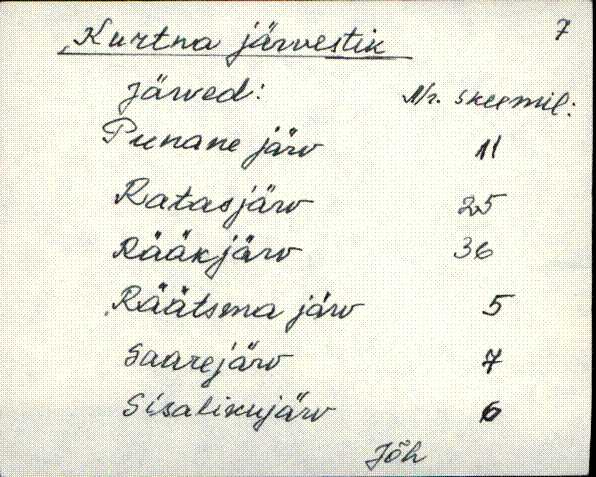 7
Kurtna järvestik
Järved: Nr. skeemil:
Punane järv 11
Ratasjärv 25
Rääkjärv 36
Räätsma järv 5
Saarejärv 7
Sisalikujärv 6
Jõh